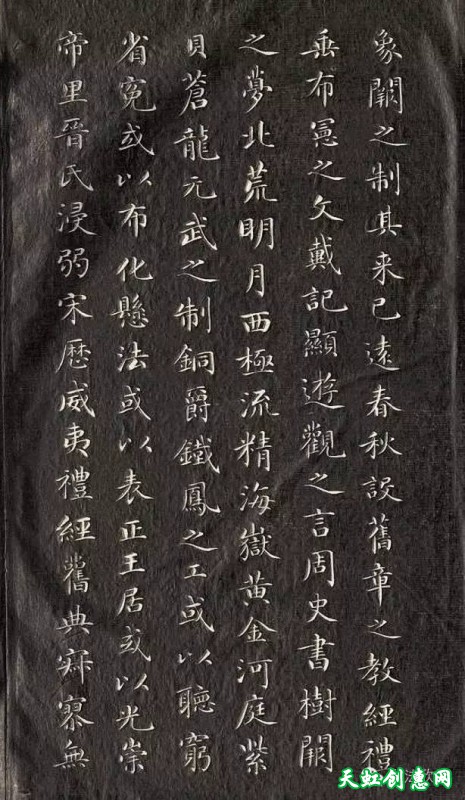 象闕之制其来已遠春秋設舊章之教經禮
垂布憲之文戴記顯遊觀之言周史書樹闕
之夢北荒明月西極流精海嶽黄金河庭紫
貝蒼龍元武之制銅爵鐵鳳之工或以聽窮
省冤或以布化懸法或以表正王居或以光崇
帝里晉氏浸弱宋歷威夷禮經舊典寂寥無
天虹创意网